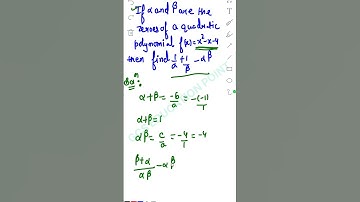 If α and β are the
zeroes of a quadratic
polynomial f(x) = x²-x-4
then find 1/α + 1/β - αβ
Solⁿ
α+β = -b/a = -(-1)/1
α+β = 1
αβ = c/a = -4/1 = -4
β+α/αβ - αβ